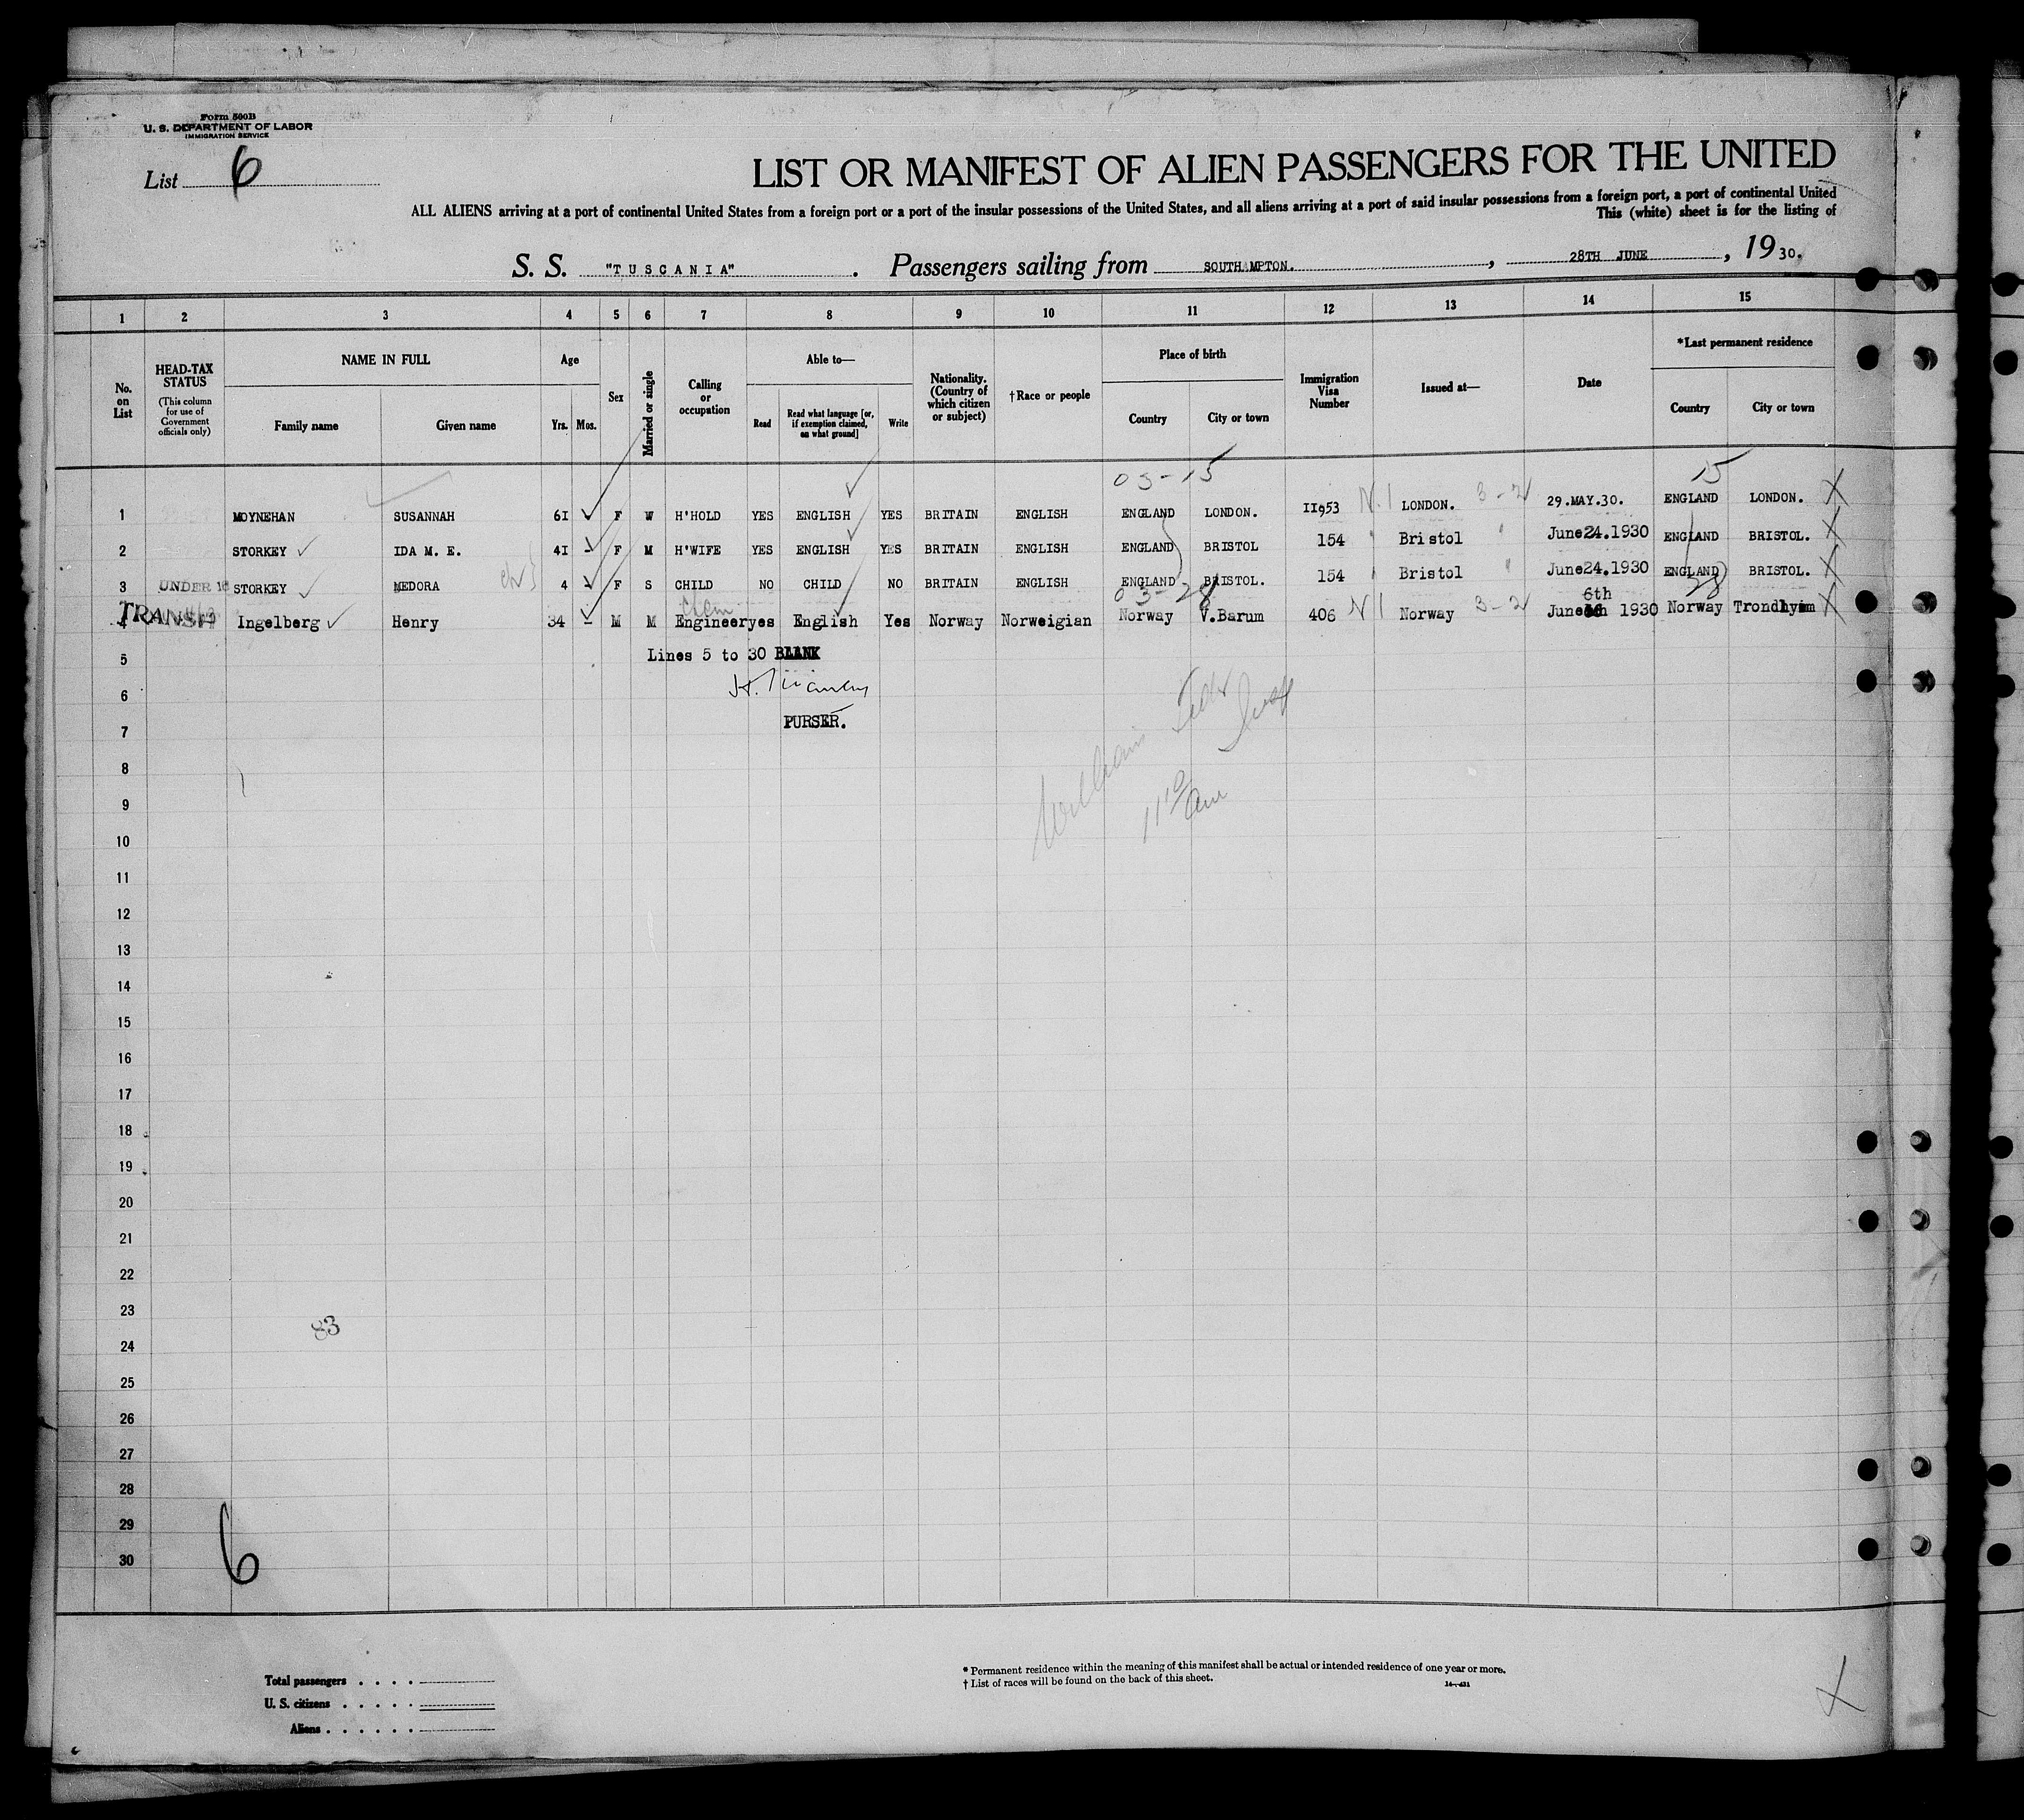 Form 500B
U. S. DEPARTMENT OF LABOR
IMMIGRATION SERVICE
List 6
LIST OR MANIFEST OF ALIEN PASSENGERS FOR THE UNITED
ALL ALIENS arriving at a port of continental United States from a foreign port or a port of the insular possessions of the United States, and all aliens arriving at a port of said insular possessions from a foreign port, a port of continental United
This (white) sheet is for the listing of
S. S. "TUSCANIA" . Passengers sailing from SOUTHAMPTON. , 28TH JUNE , 19 30.
1 2 3 4 5 6 7 8 9 10 11 12 13 14 15
No. on List
HEAD-TAX STATUS (This column for use of Government officials only)
NAME IN FULL
Family name Given name
Age
Yrs. Mos.
Sex
Married or single
Calling or occupation
Able to—
Read
Read what language [or, if exemption claimed, on what ground]
Write
Nationality. (Country of which citizen or subject)
†Race or people
Place of birth
Country City or town
Immigration Visa Number
Issued at—
Date
*Last permanent residence
Country City or town
03-15 15
1 MOYNEHAN SUSANNAH 61 F W H'HOLD YES ENGLISH YES BRITAIN ENGLISH ENGLAND LONDON. II953 N.I LONDON. 3-2 29.MAY.30. ENGLAND LONDON. X
2 STORKEY IDA M. E. 41 - F M H'WIFE YES ENGLISH YES BRITAIN ENGLISH ENGLAND BRISTOL 154 " Bristol " June24.1930 ENGLAND BRISTOL. X
3 UNDER 16 STORKEY MEDORA 4 - F S CHILD NO CHILD NO BRITAIN ENGLISH ENGLAND BRISTOL. 154 Bristol " June24.1930 ENGLAND BRISTOL. X
03-28 28
6th
4 TRANSIT Ingelberg Henry 34 - M M Engineer yes English Yes Norway Norweigian Norway V.Barum 406 N I Norway 3-2 June 1930 Norway Trondhyem X
5 Lines 5 to 30 BLANK
6
7 PURSER.
William
8
9 11 10/am
10
11
12
13
14
15
16
17
18
19
20
21
22
23
83
24
25
26
27
28
29
30
6
Total passengers . . . .
U. S. citizens . . . . .
Aliens . . . . . .
* Permanent residence within the meaning of this manifest shall be actual or intended residence of one year or more.
† List of races will be found on the back of this sheet.
14—431
X